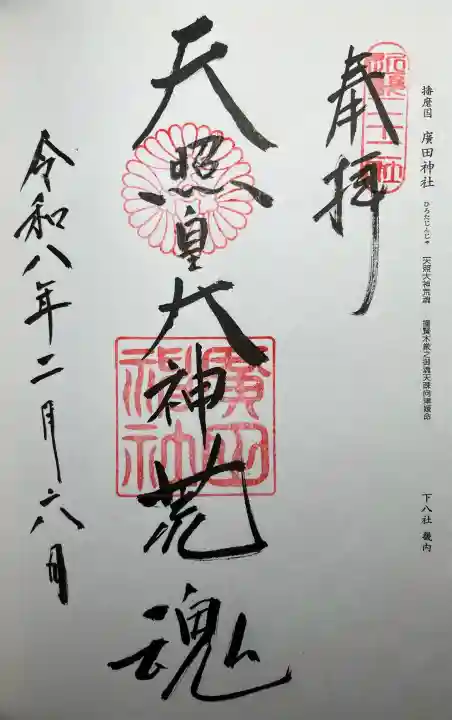 播磨国 廣田神社 ひろたじんじゃ 天照大神荒魂 撞賢木厳之御魂天疎向津媛命 下八社 畿内
奉拝
二十二社
天照皇大神荒魂
廣田神社
令和八年二月六日